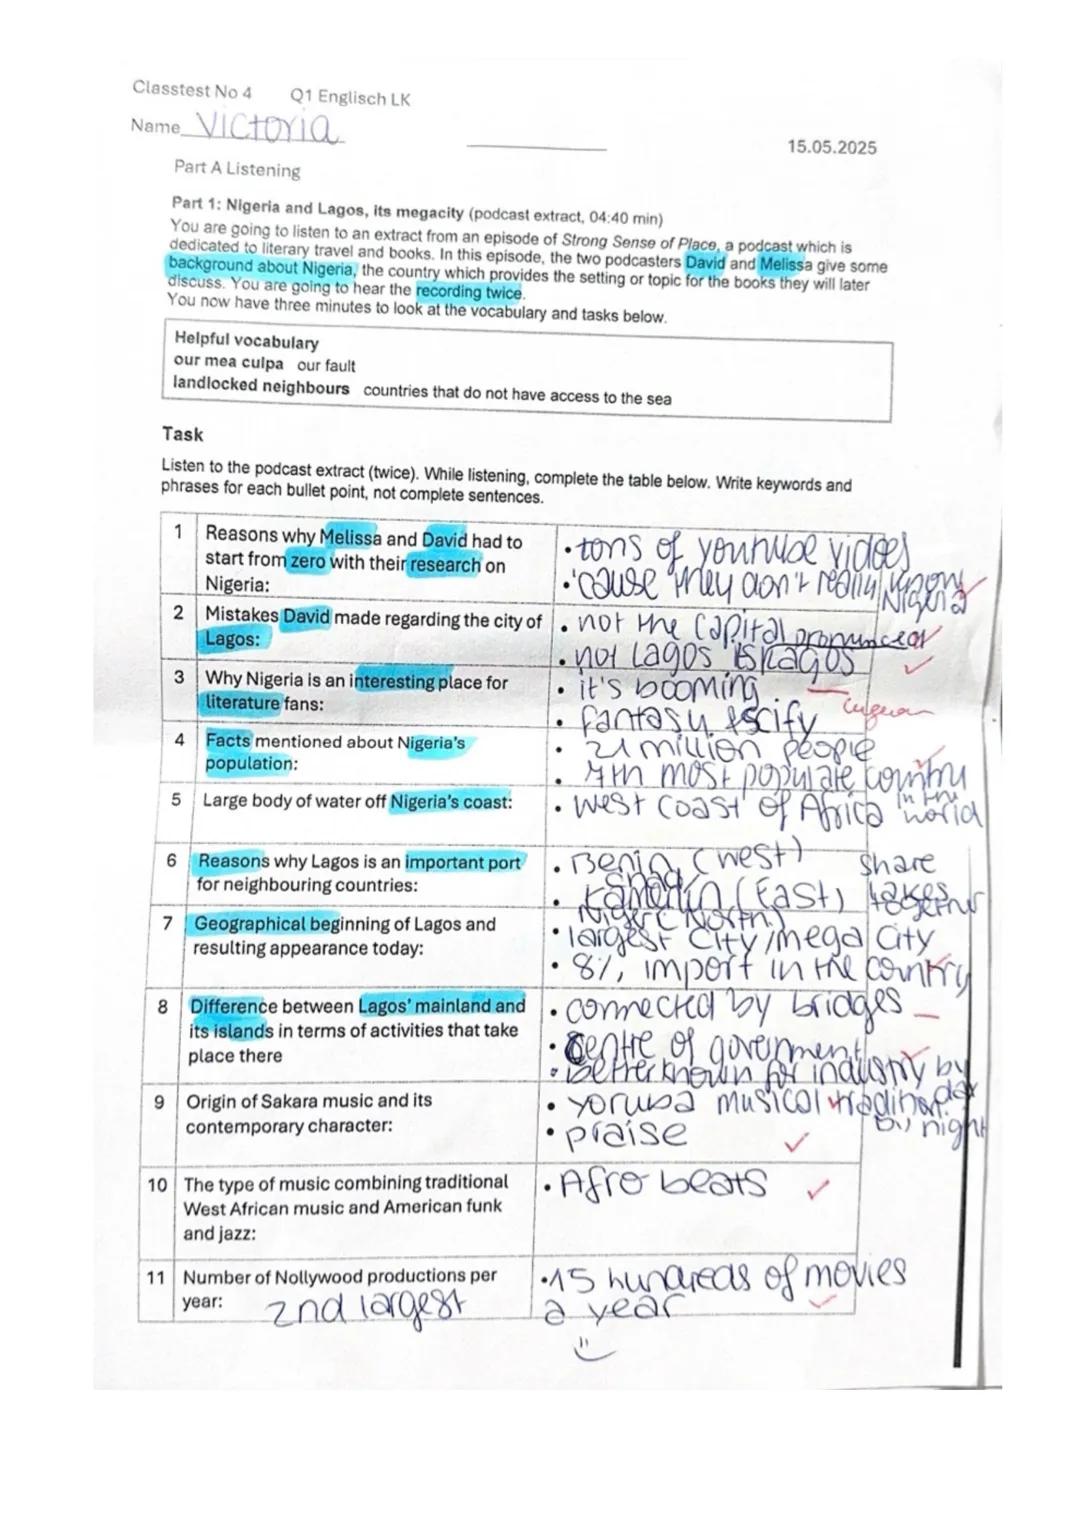 Classtest No 4 Q1 Englisch LK
Name Victoria
15.05.2025
Part A Listening
Part 1: Nigeria and Lagos, its megacity (podcast extract, 04:40 min)
You are going to listen to an extract from an episode of Strong Sense of Place, a podcast which is
dedicated to literary travel and books. In this episode, the two podcasters David and Melissa give some
background about Nigeria, the country which provides the setting or topic for the books they will later
discuss. You are going to hear the recording twice.
You now have three minutes to look at the vocabulary and tasks below.
Helpful vocabulary
our mea culpa our fault
landlocked neighbours countries that do not have access to the sea
Task
Listen to the podcast extract (twice). While listening, complete the table below. Write keywords and
phrases for each bullet point, not complete sentences.
1 Reasons why Melissa and David had to
start from zero with their research on
Nigeria:
• tons of youtube vidoes
• 'cause they don't really know
Nigeria
2 Mistakes David made regarding the city of
Lagos:
• not the capital pronounced
• not Lagos is Lagos
3 Why Nigeria is an interesting place for
literature fans:
• it's booming
• fantasy, scify
4 Facts mentioned about Nigeria's
population:
• 21 million people
• 7th most populate country
in the
world
5 Large body of water off Nigeria's coast:
• West coast of Africa
6 Reasons why Lagos is an important port
for neighbouring countries:
• Benin (west) share
• Kamerun (East) lakes
together
Niger (North)
7 Geographical beginning of Lagos and
resulting appearance today:
• largest city/mega city
• 8%, import in the country
8 Difference between Lagos' mainland and
its islands in terms of activities that take
place there
• connected by bridges
• centre of government
• better known for industry by
day
by night
9 Origin of Sakara music and its
contemporary character:
• yoruba musical tradition
• praise
10 The type of music combining traditional
West African music and American funk
and jazz:
• Afro beats
11 Number of Nollywood productions per
year: 2nd largest
• 15 hundreds of movies
a year